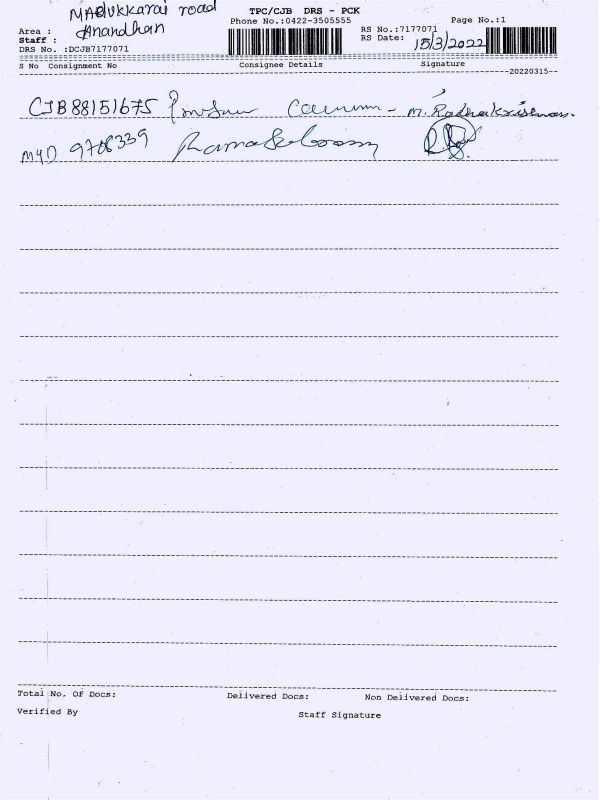 TPC/CJB DRS - PCK
Area : Madukkarai road
Phone No.:0422-3505555
Page No.:1
Staff : Anandhan
RS No.:7177071
DRS No. :DCJB7177071
RS Date: 15/3/2022
S No Consignment No Consignee Details Signature
20220315
CJB88151675 M. Radhakrishnan.
MYD 9708339
Total No. Of Docs: Delivered Docs: Non Delivered Docs:
Verified By Staff Signature